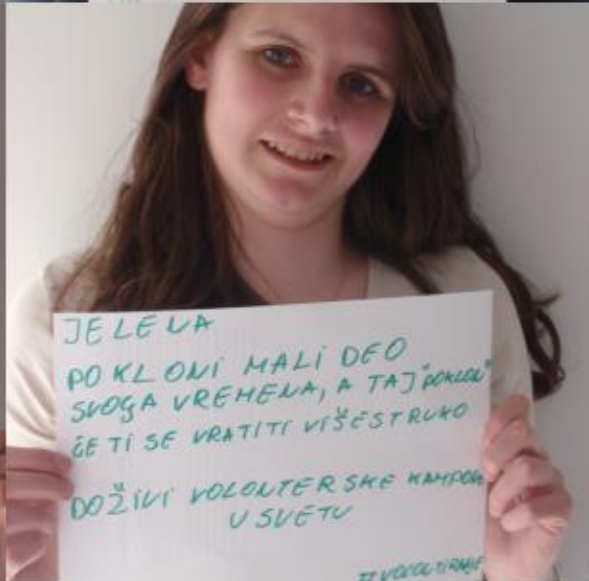 JELENA
POKLONI MALI DEO
SVOGA VREMENA, A TAJ "POKLON"
ĆE TI SE VRATITI VIŠESTRUKO
DOŽIVI VOLONTERSKE KAMPOVE
U SVETU
#VOLONTIRANJE